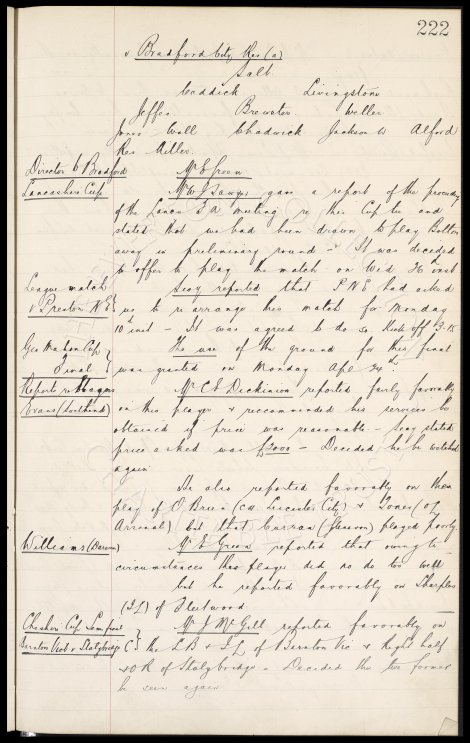 222
v Bradford City Res (a)
Salt
Caddick Livingstone
Jeffer Brewster Weller
Jones Wall Chadwick Jackson W Alford
Res Miller.
Director to Bradford Mr E Green
Lancashire Cup Mr W J Sawyer gave a report of the
of the Lancs F.A. meeting re this Cup tie and
stated that we had been drawn to play Bolton
away in preliminary round - It was decided
to offer to play the match on Wed 26th inst
League match Secy reported that P N E had asked
v Preston N E us to re arrange this match for Monday
10th inst - It was agreed to do so Kick off 3-15
Geo Mahon Cup The use of the ground for this final
Final was granted on Monday Apl 24th
Reports re Mr C E Dickinson reported fairly favorably
Evans (Southend) on this player & recommended his services be
obtained if price was reasonable - Secy stated
price asked was £2000 - Decided he be watched
again
He also reported favorably on the
play of O'Brien (CH Leicester City) & Jones (OL
Arsenal) but that Curran played poorly
Williams (Darwen) Mr E Green reported that owing to
circumstances this player did no do too well
but he reported favorably on Sharples
(IL) of Fleetwood
Cheshire Cup Semi final Mr J McGill reported favorably on
v Stalybridge C the LB & IL of Vic & Right half
& OR of Stalybridge - Decided the two former
be seen again